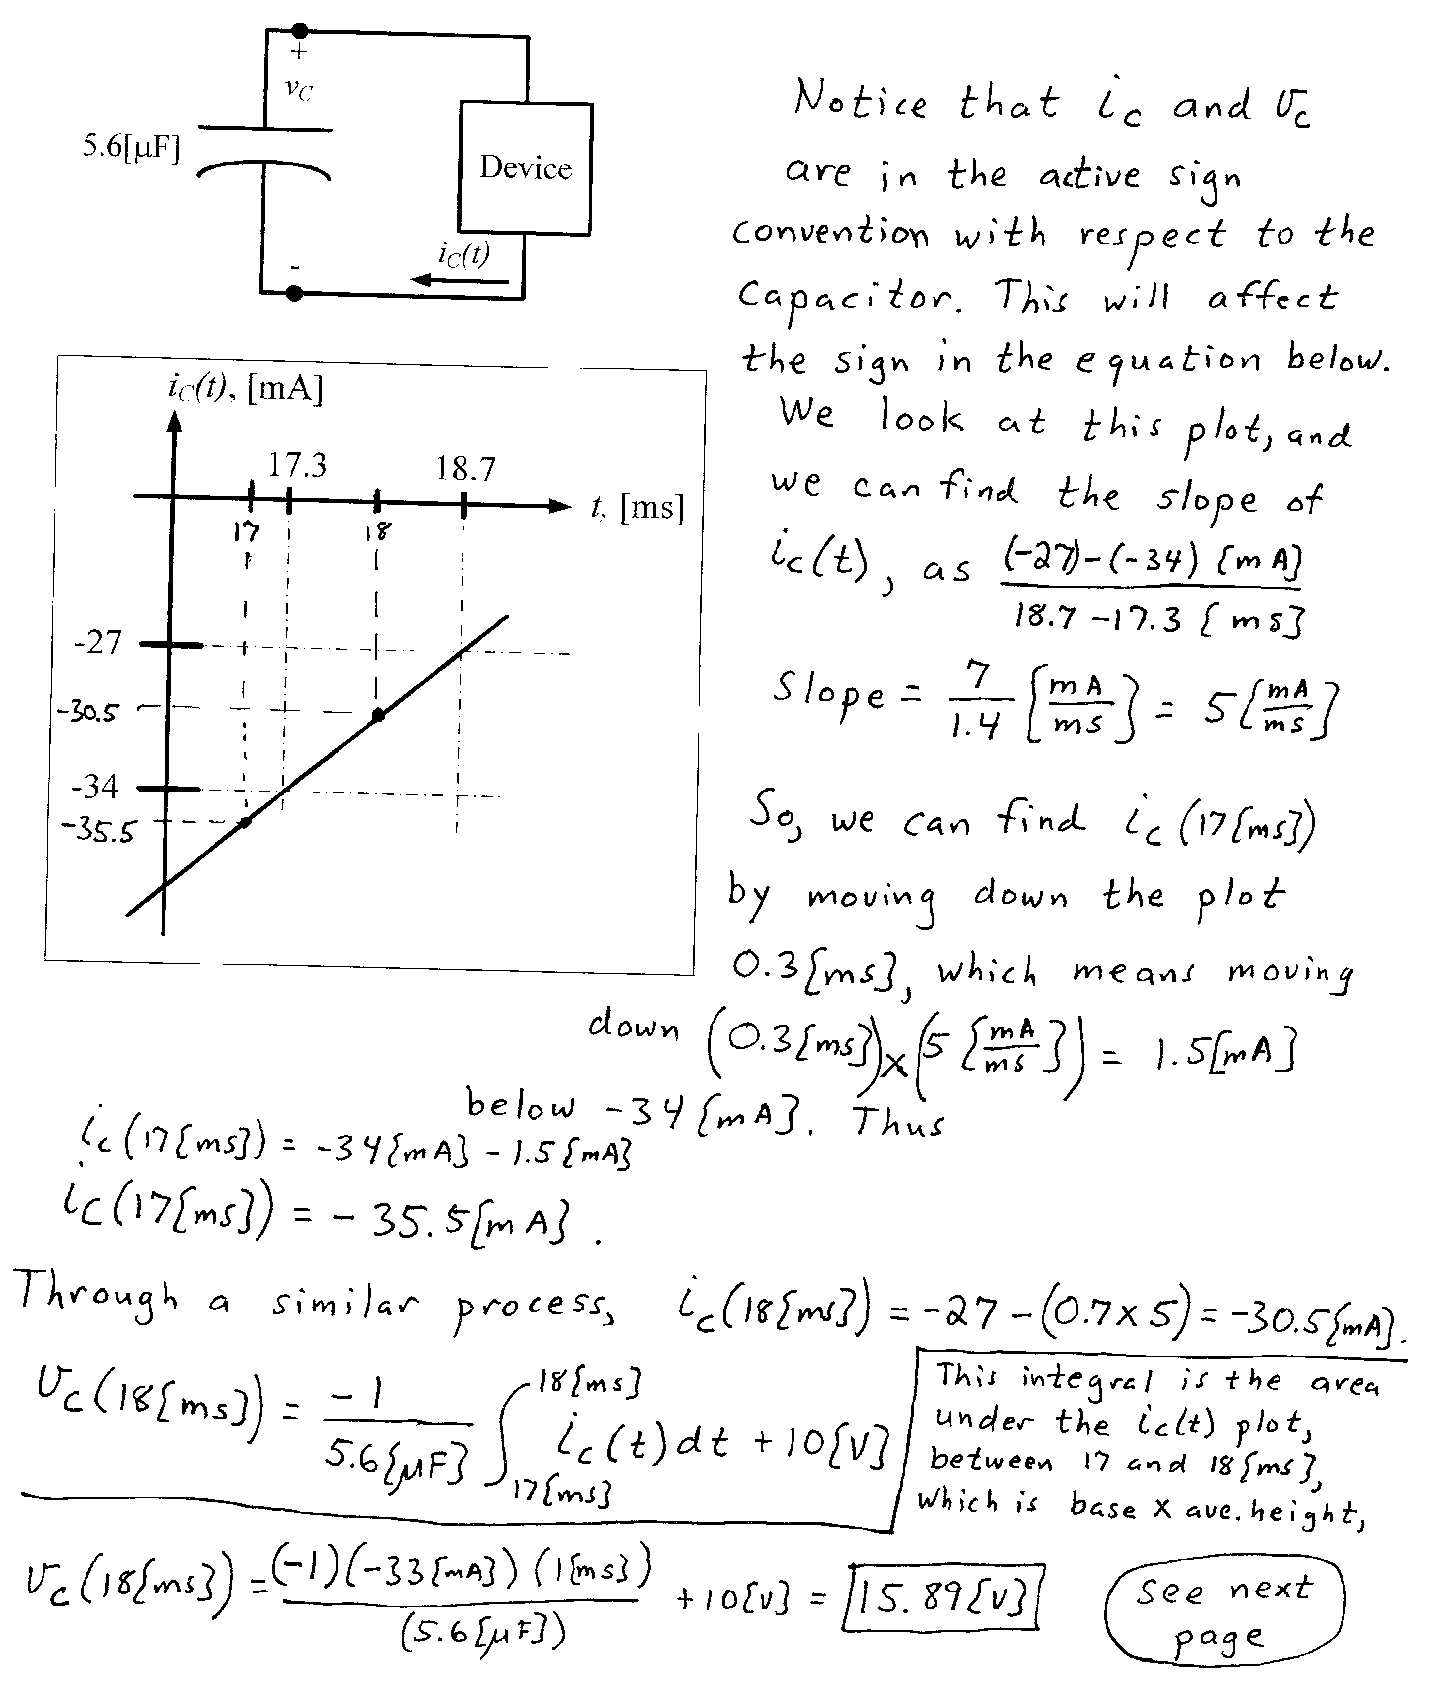 +
v_C
5.6[μF]
Device
i_C(t)
-
Notice that i_c and v_c
are in the active sign
convention with respect to the
Capacitor. This will affect
the sign in the equation below.
We look at this plot, and
we can find the slope of
i_c(t), as (-27)-(-34) [mA]
18.7 -17.3 [ms]
Slope = 7/1.4 [mA/ms] = 5[mA/ms]
So, we can find i_c(17[ms])
by moving down the plot
0.3[ms], which means moving
down (0.3[ms])×(5[mA/ms]) = 1.5[mA]
below -34[mA]. Thus
i_C(t), [mA]
17.3
18.7
t, [ms]
17
18
-27
-30.5
-34
-35.5
i_c(17[ms]) = -34[mA] - 1.5[mA]
i_c(17[ms]) = -35.5[mA].
Through a similar process, i_c(18[ms]) = -27 -(0.7×5) = -30.5[mA].
v_c(18[ms]) = -1/5.6[μF] ∫_17[ms]^18[ms] i_c(t)dt + 10[V]
This integral is the area
under the i_c(t) plot,
between 17 and 18[ms],
which is base × ave. height,
v_c(18[ms]) = (-1)(-33[mA])(1[ms])/(5.6[μF]) + 10[V] = 15.89[V]
See next
page